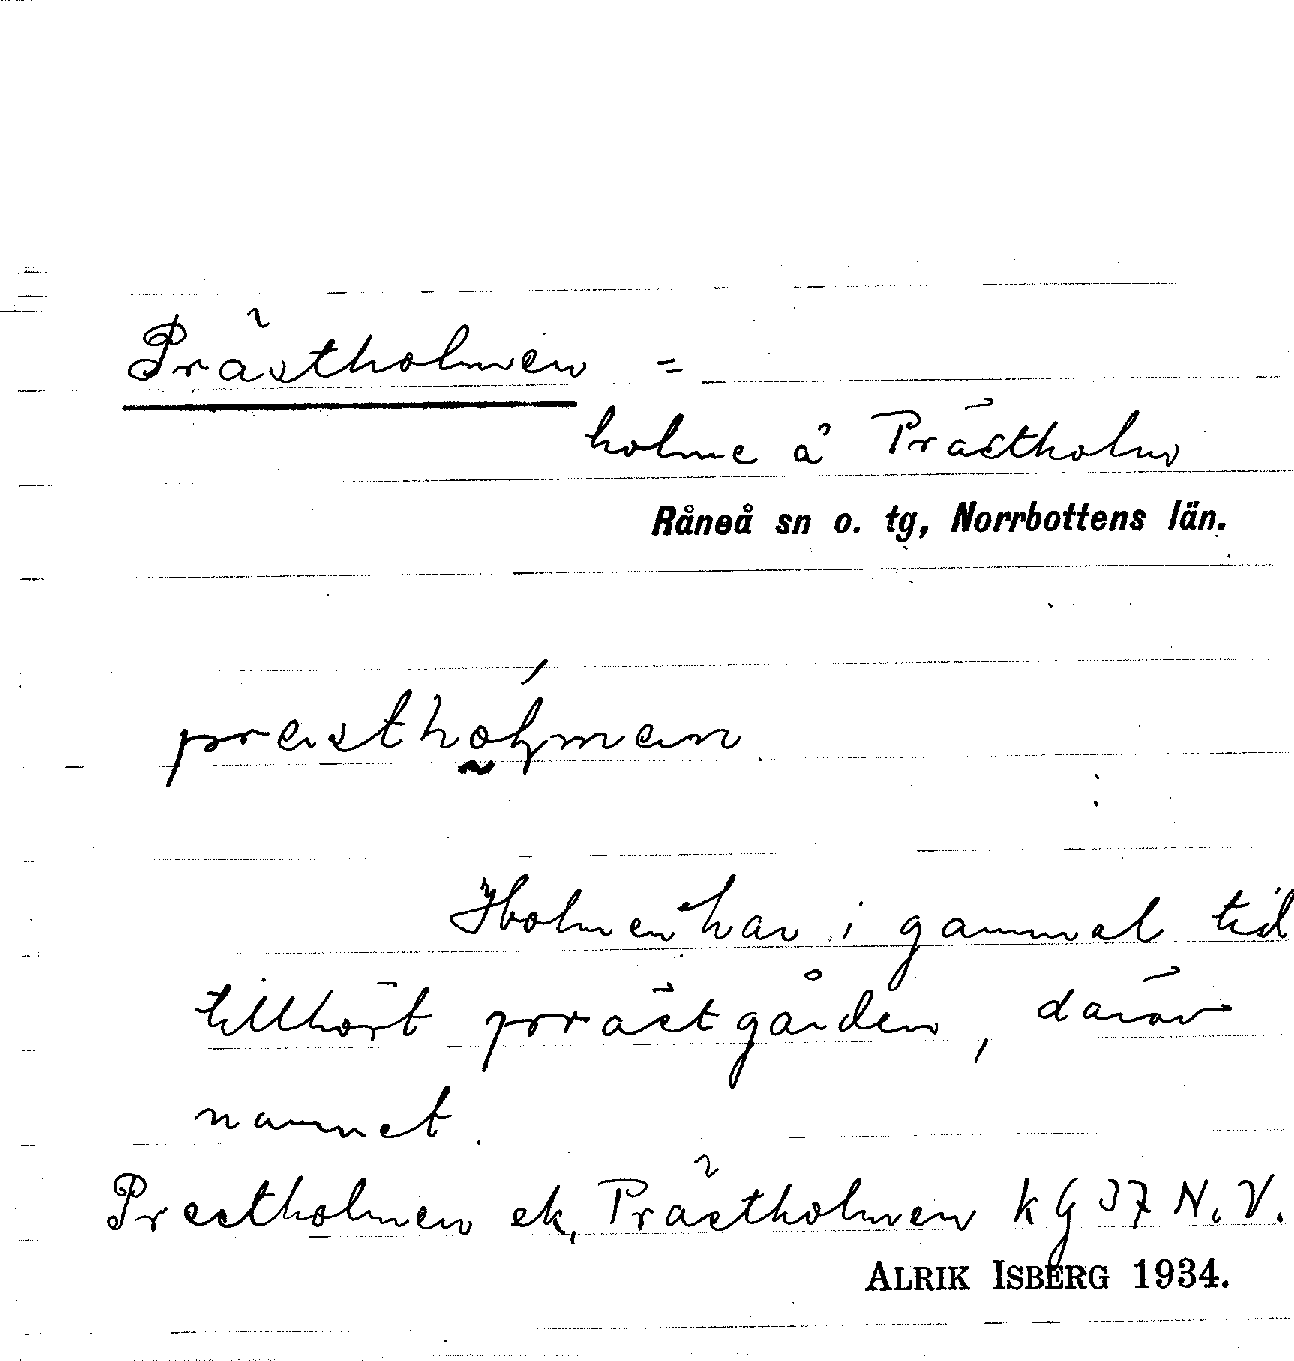 Prästholmen =
holme å Prästholm
Råneå sn o. tg, Norrbottens län.
Holmen har i gammal tid
tillhört prästgården, därav
namnet.
Prestholmen ek, Prästholmen k G 37 N.V.
ALRIK ISBERG 1934.